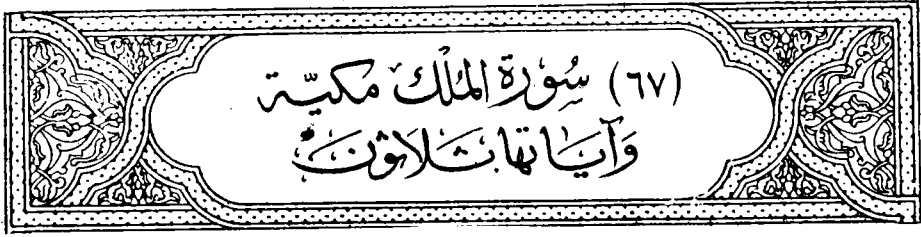 (٦٧) سُورَة المُلْك مَكيّة
وَآيَاتهَا ثَلاثونَ